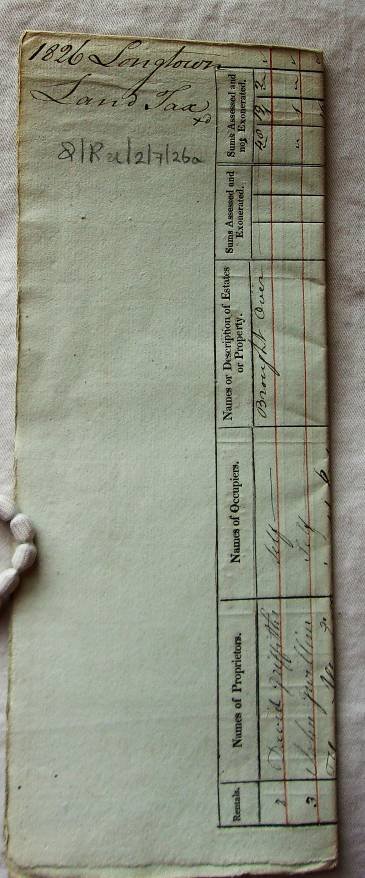 1826 Longtown
Land Tax
xd
Q/REl/2/7/26a
Rentals.
Names of Proprietors.
Names of Occupiers.
Names or Description of Estates
or Property.
Sums Assessed and
Exonerated.
Sums Assessed and
not Exonerated.
Brought Over
2 David Griffiths Self
3 John Self